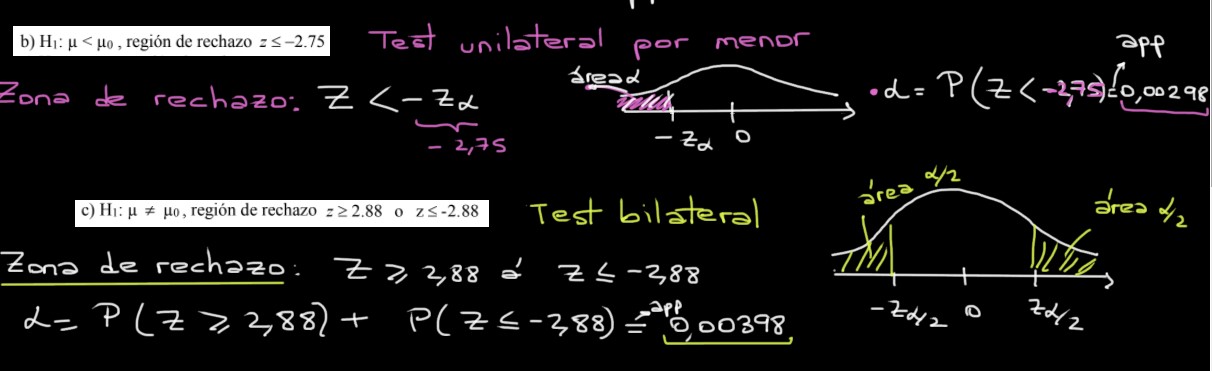 b) H₁: μ < μ₀ , región de rechazo z ≤ −2.75
Test unilateral por menor
Zona de rechazo: Z < −zα
− 2,75
área α
− zα 0
app
• α = P(Z < −2,75) = 0,00298
c) H₁: μ ≠ μ₀ , región de rechazo z ≥ 2.88 o z ≤ -2.88
Test bilateral
área α/2
área α/2
−zα/2 0 zα/2
Zona de rechazo: Z ⩾ 2,88 ó Z ≤ −2,88
app
α = P(Z ⩾ 2,88) + P(Z ≤ −2,88) = 0,00398